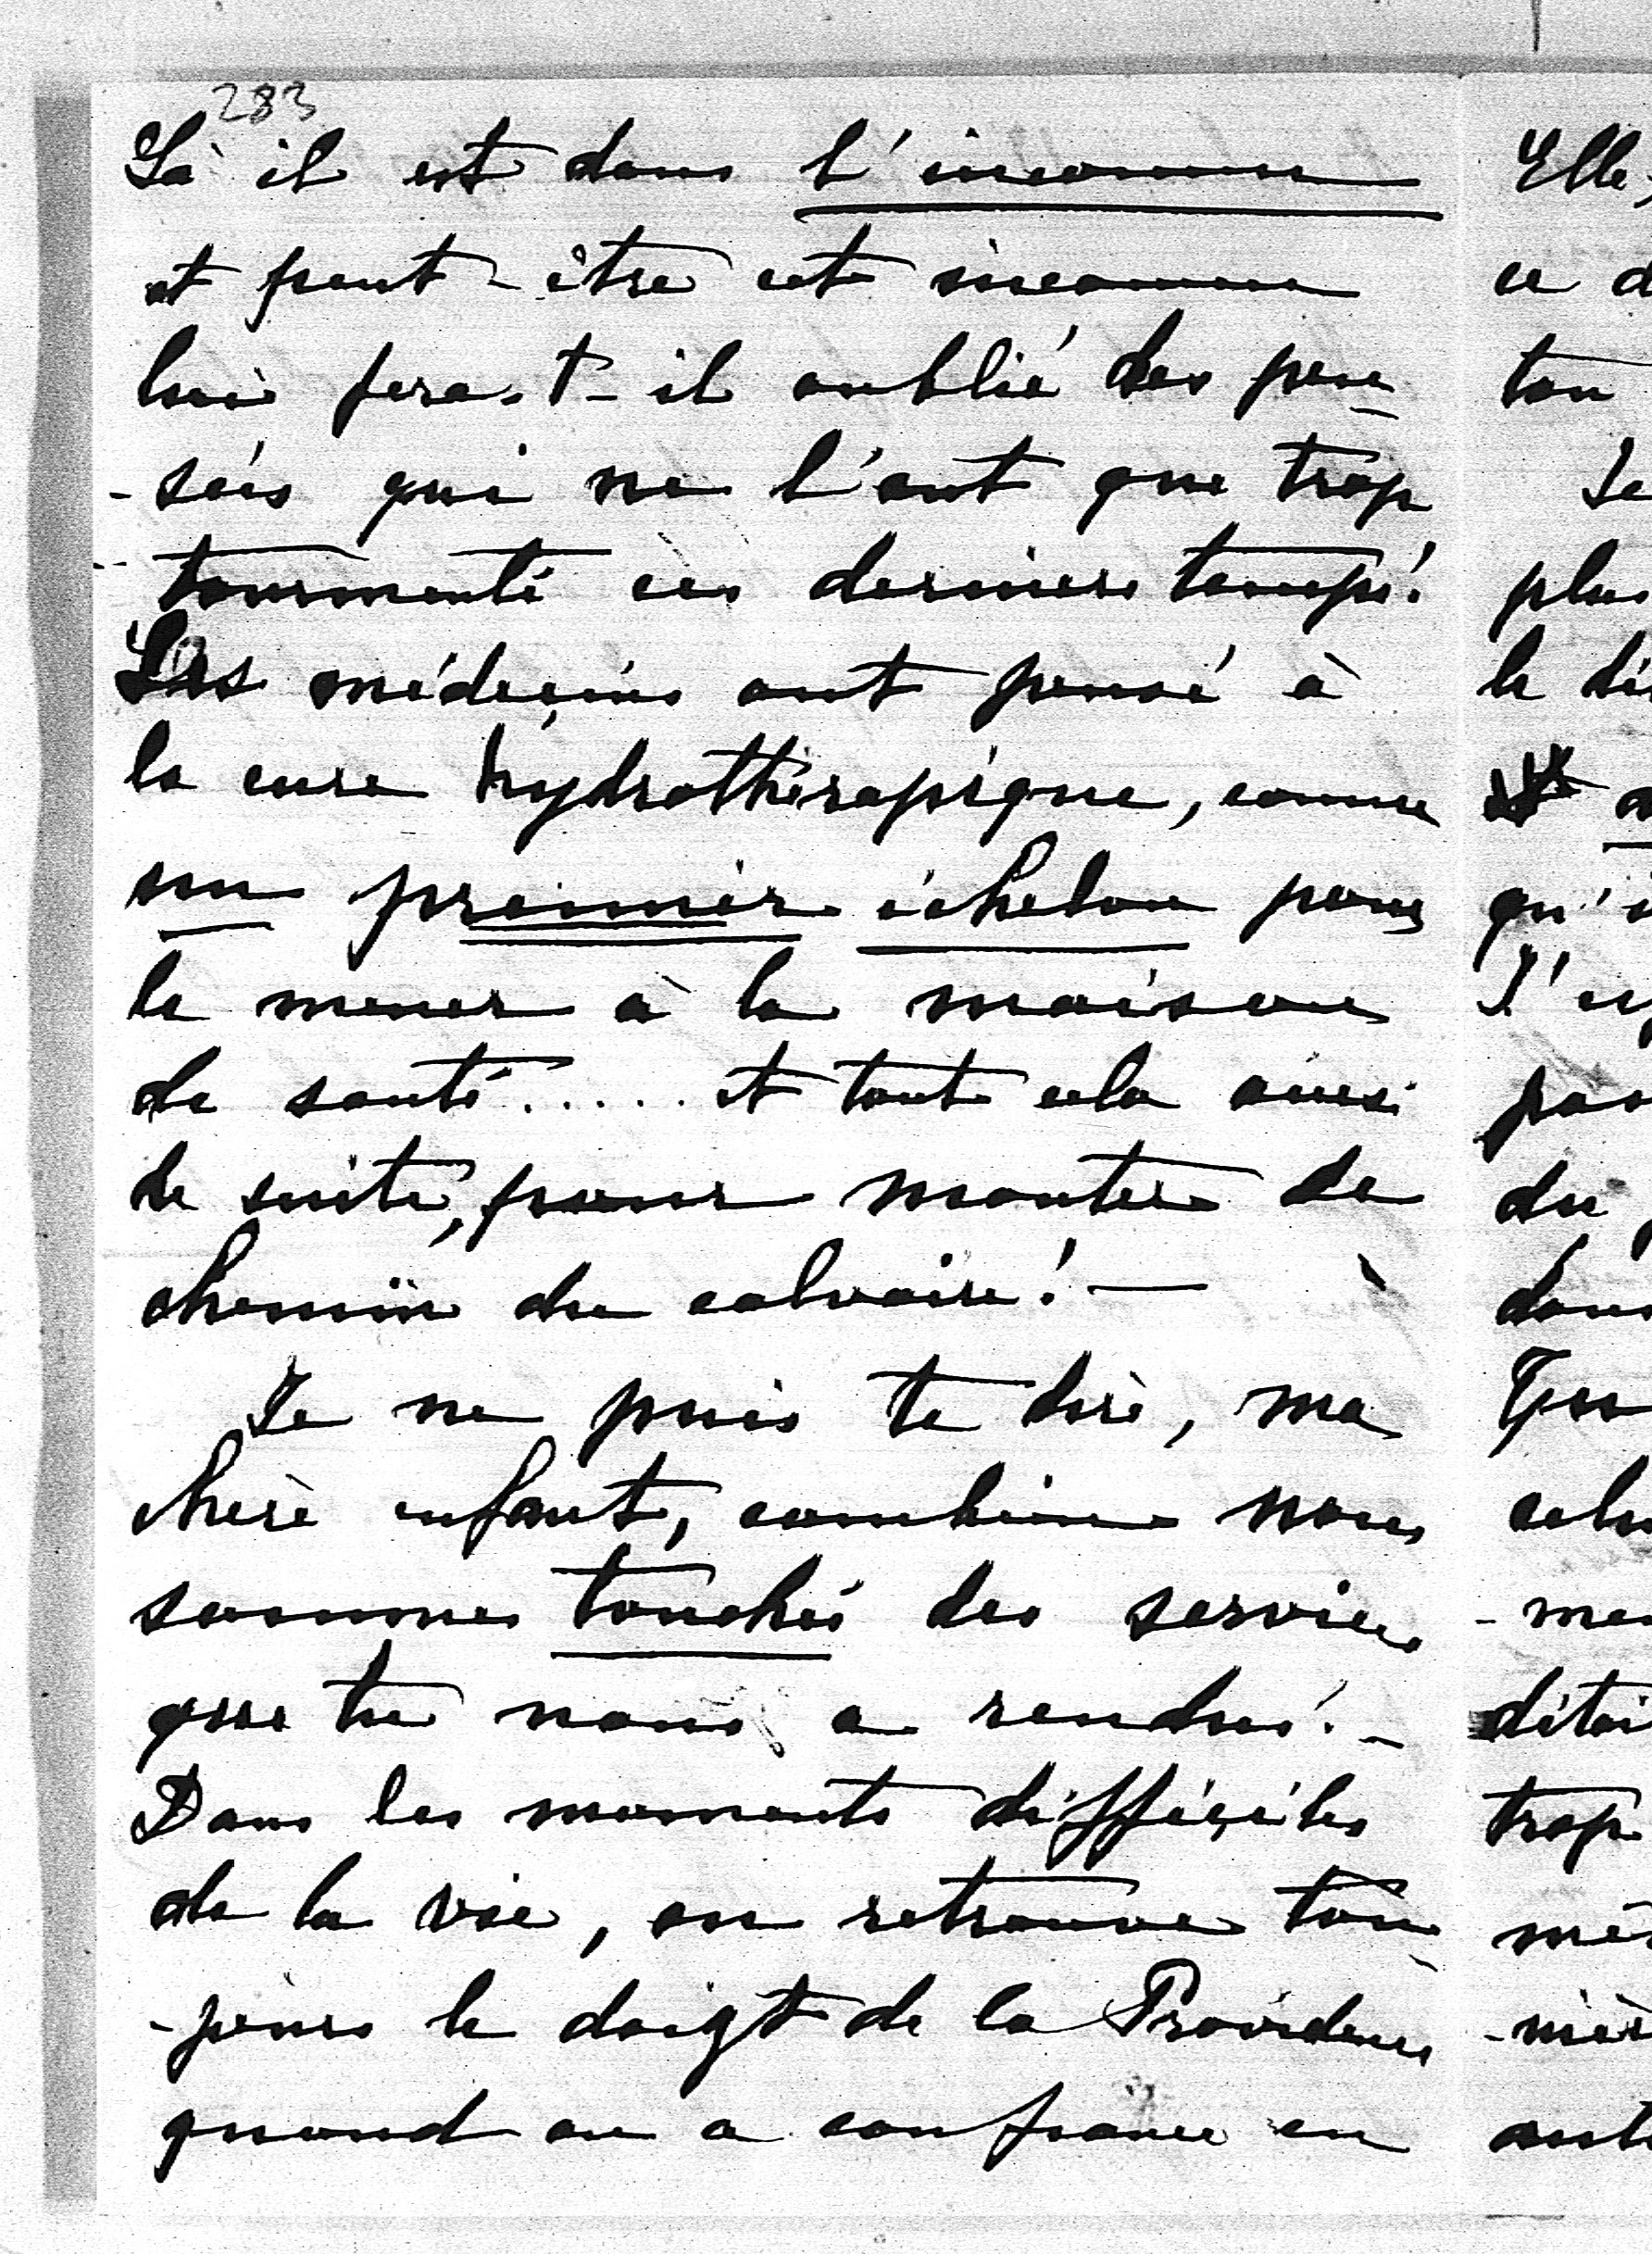 283
Là il est dans l'inconnu
et peut-être cet inconnu
lui fera-t-il oublié des pen
-sées qui ne l'ont que trop
tourmenté ces derniers temps!
Les médecins ont pensé à
la cure hydrothérapique, comme
un premier échelon pour
le mener à la maison
de santé..... et tout cela ainsi
de suite, pour monter le
chemin du calvaire! —
Je ne puis te dire, ma
chère enfant, combien nous
sommes touchés des services
que tu nous a rendus. -
Dans les moments difficiles
de la vie, on retrouve tou
-jours le doigt de la Providence
quand on a confiance en
Elle,
ce d
ton
Je
plus
le di
qu'i
pas
du
dans
celu
-me
détai
trop